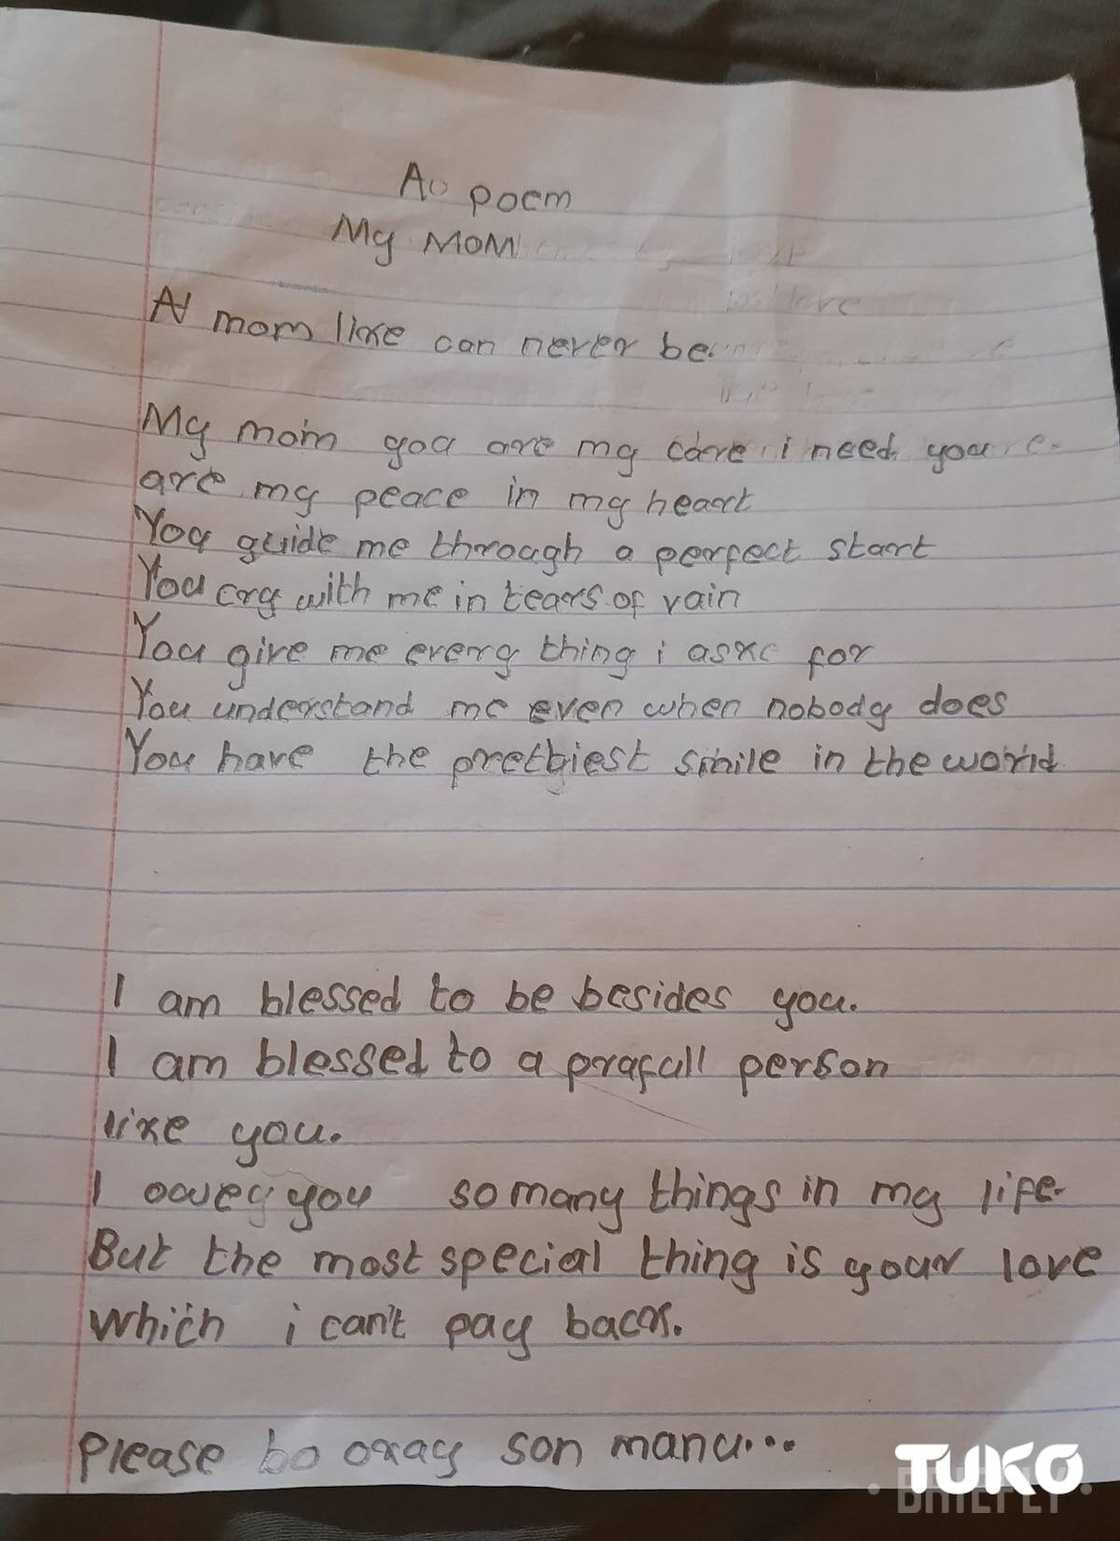 A poem
My MOM
A mom like can never be
My mom you are my care i need you
are my peace in my heart
You guide me through a perfect start
You cry with me in tears of rain
You give me every thing i ask for
You understand me even when nobody does
You have the prettiest smile in the world
I am blessed to be besides you.
I am blessed to a prafull person
like you.
I owe you so many things in my life.
But the most special thing is your love
which i can't pay back.
please be okay son manu...
TUKO
BRIEFLY